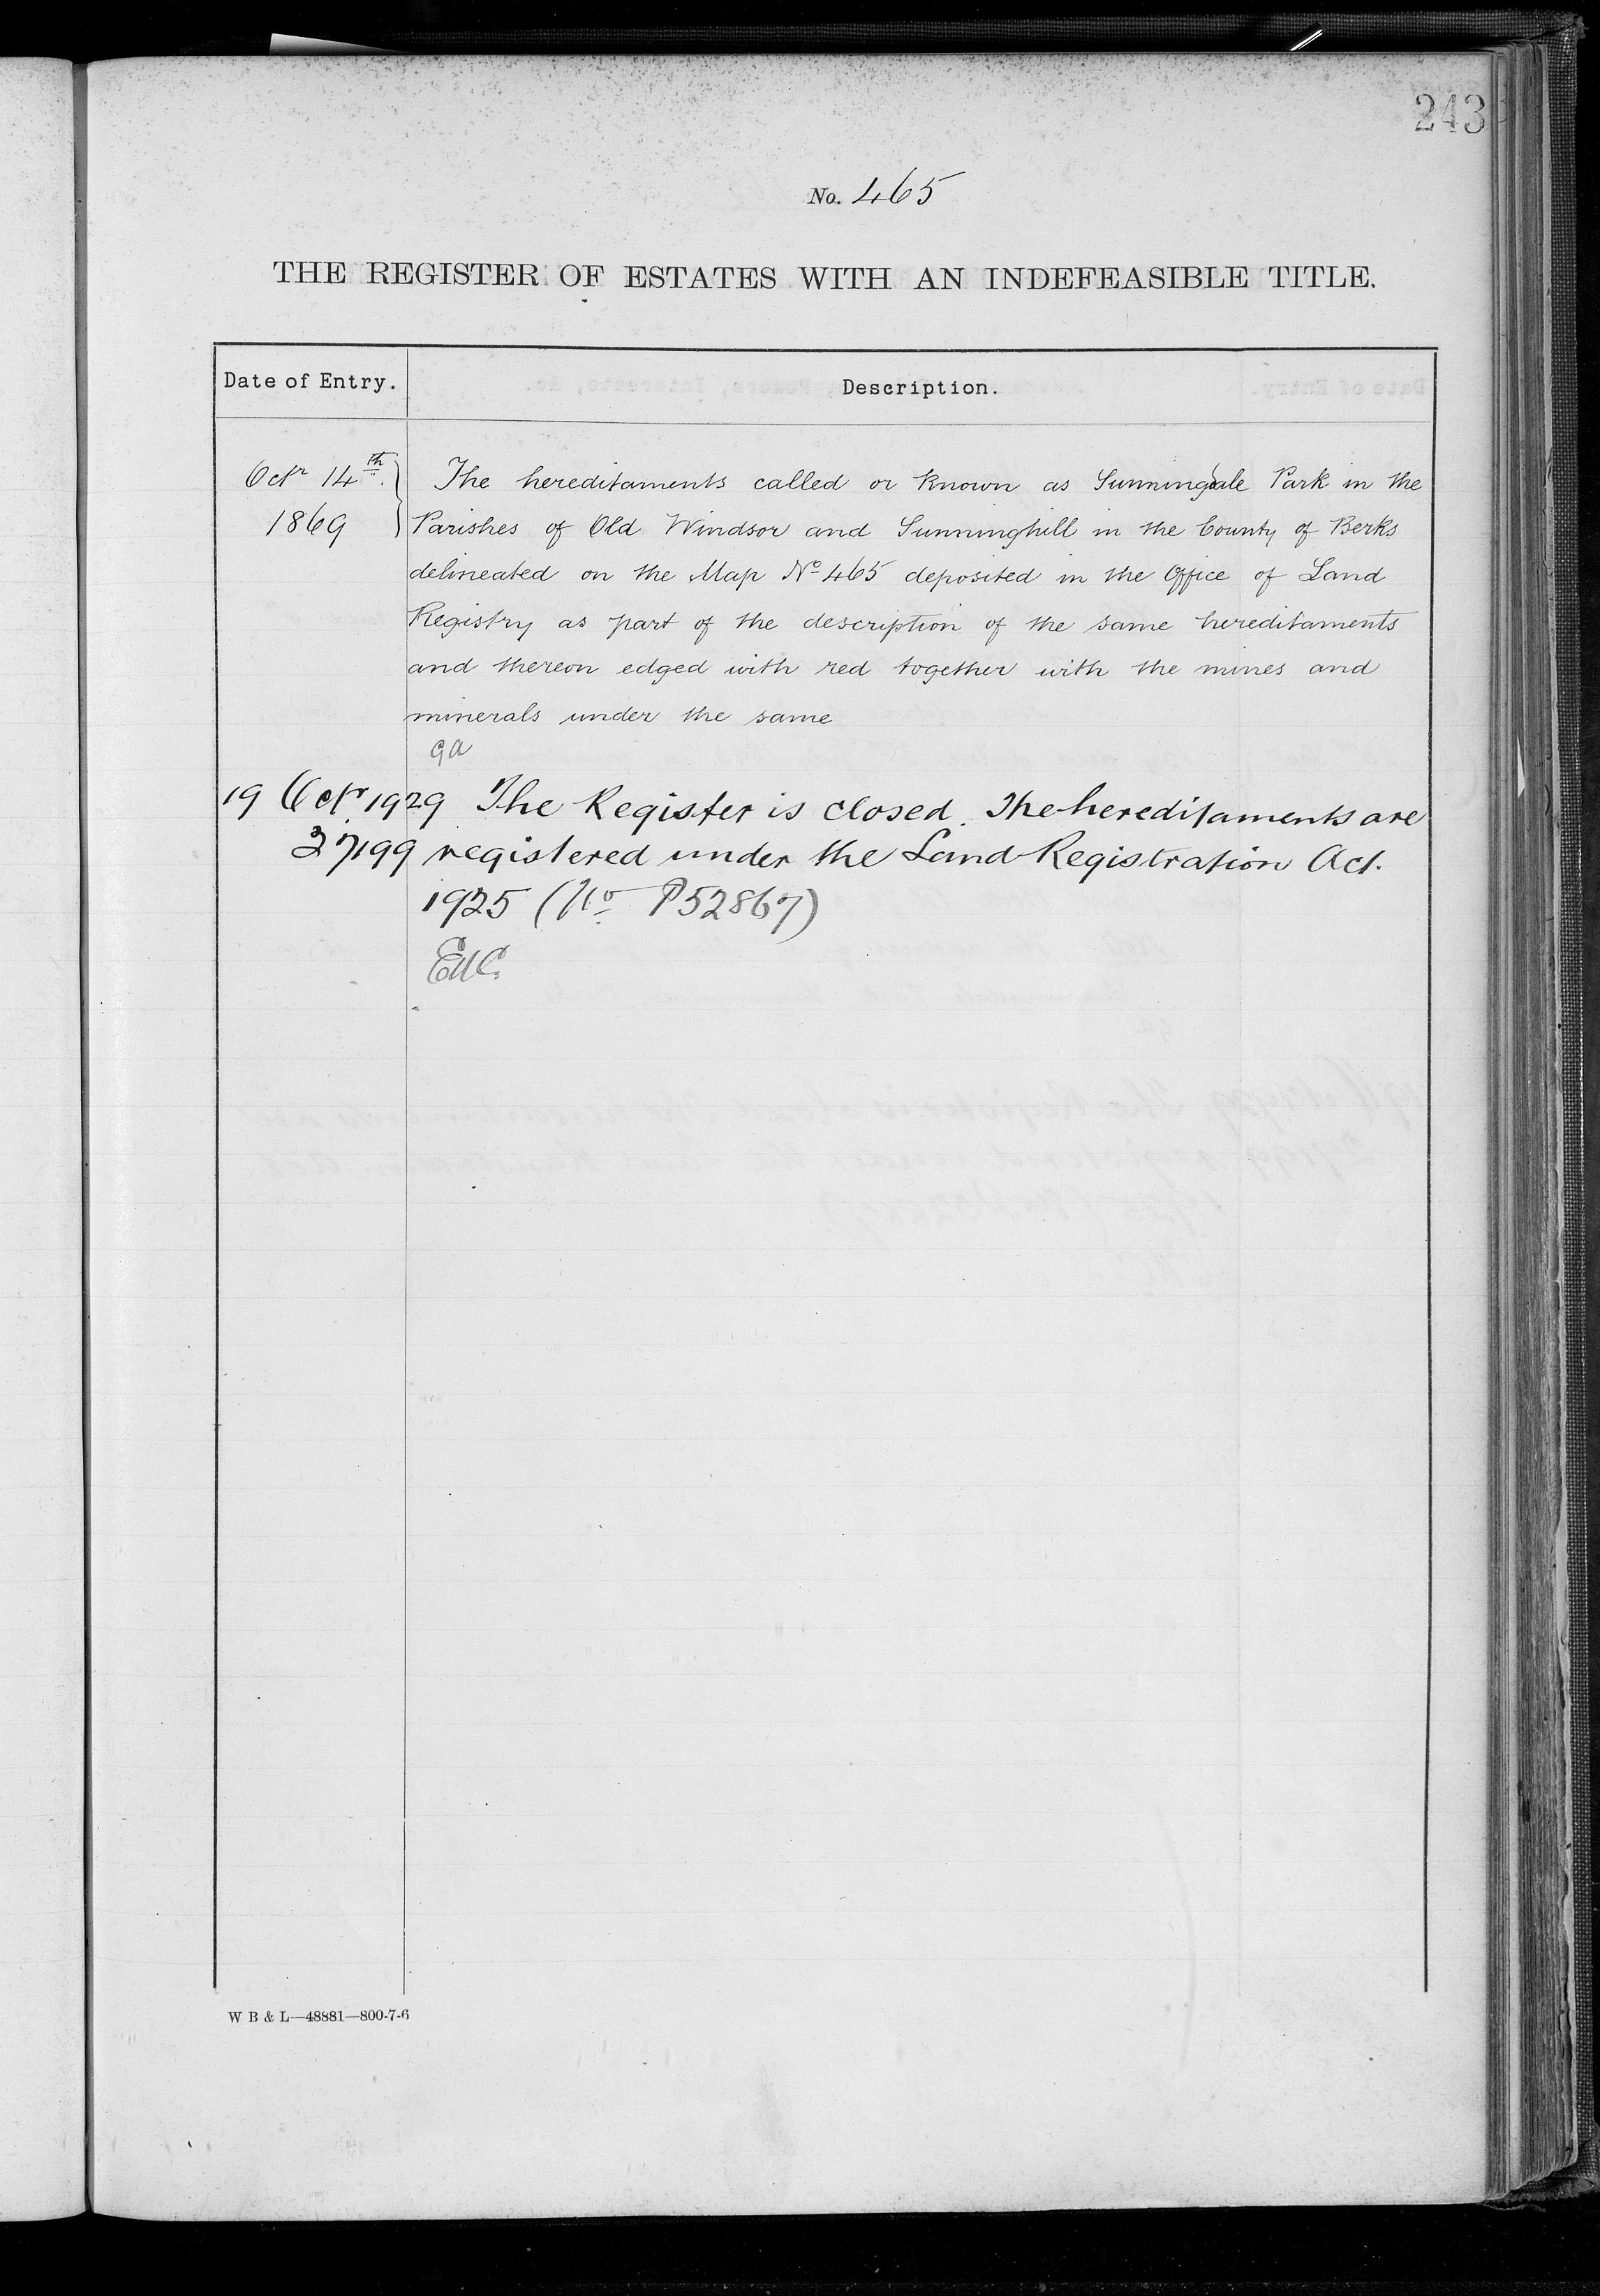 243
No. 465
THE REGISTER OF ESTATES WITH AN INDEFEASIBLE TITLE.
Date of Entry.
Description.
Octr 14th.
1869
The hereditaments called or known as Sunningdale Park in the
Parishes of Old Windsor and Sunninghill in the County of Berks
delineated on the Map No 465 deposited in the Office of Land
Registry as part of the description of the same hereditaments
and thereon edged with red together with the mines and
minerals under the same
GA
19 Octr 1929 The Register is closed. The hereditaments are
27199 registered under the Land Registration Act.
1925 (No P52867)
W B & L—48881—800-7-6